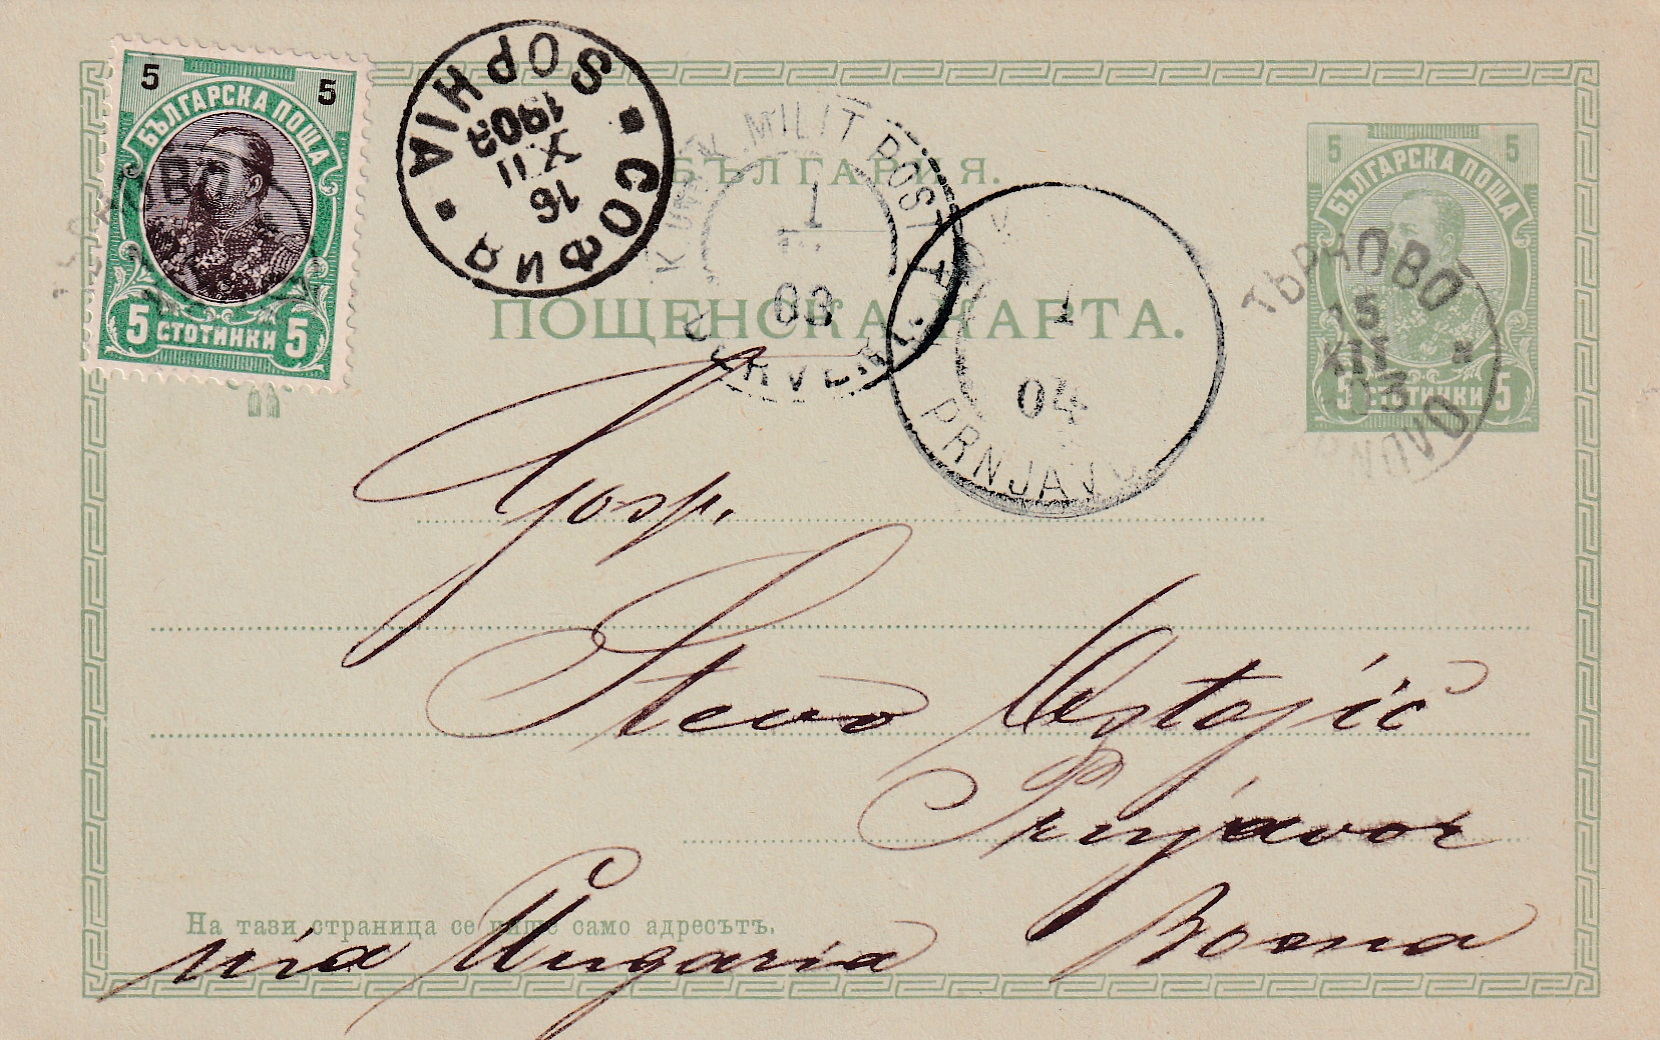 5 5
БЪЛГАРСКА ПОЩА
5 СТОТИНКИ 5
SOPHIA
16
XII
1903
СОФИЯ
MILIT POST
1
03
DERVENT
1
04
PRNJAVO
БЪЛГАРИЯ.
ПОЩЕНСКА КАРТА.
5 5
БЪЛГАРСКА ПОЩА
5 СТОТИНКИ 5
ТЪРНОВО
15
XII
03
TIRNOVO
Gosp.
Stevo Ostojić
Prnjavor
Bosna
На тази страница се пише само адресътъ.
via Ungaria